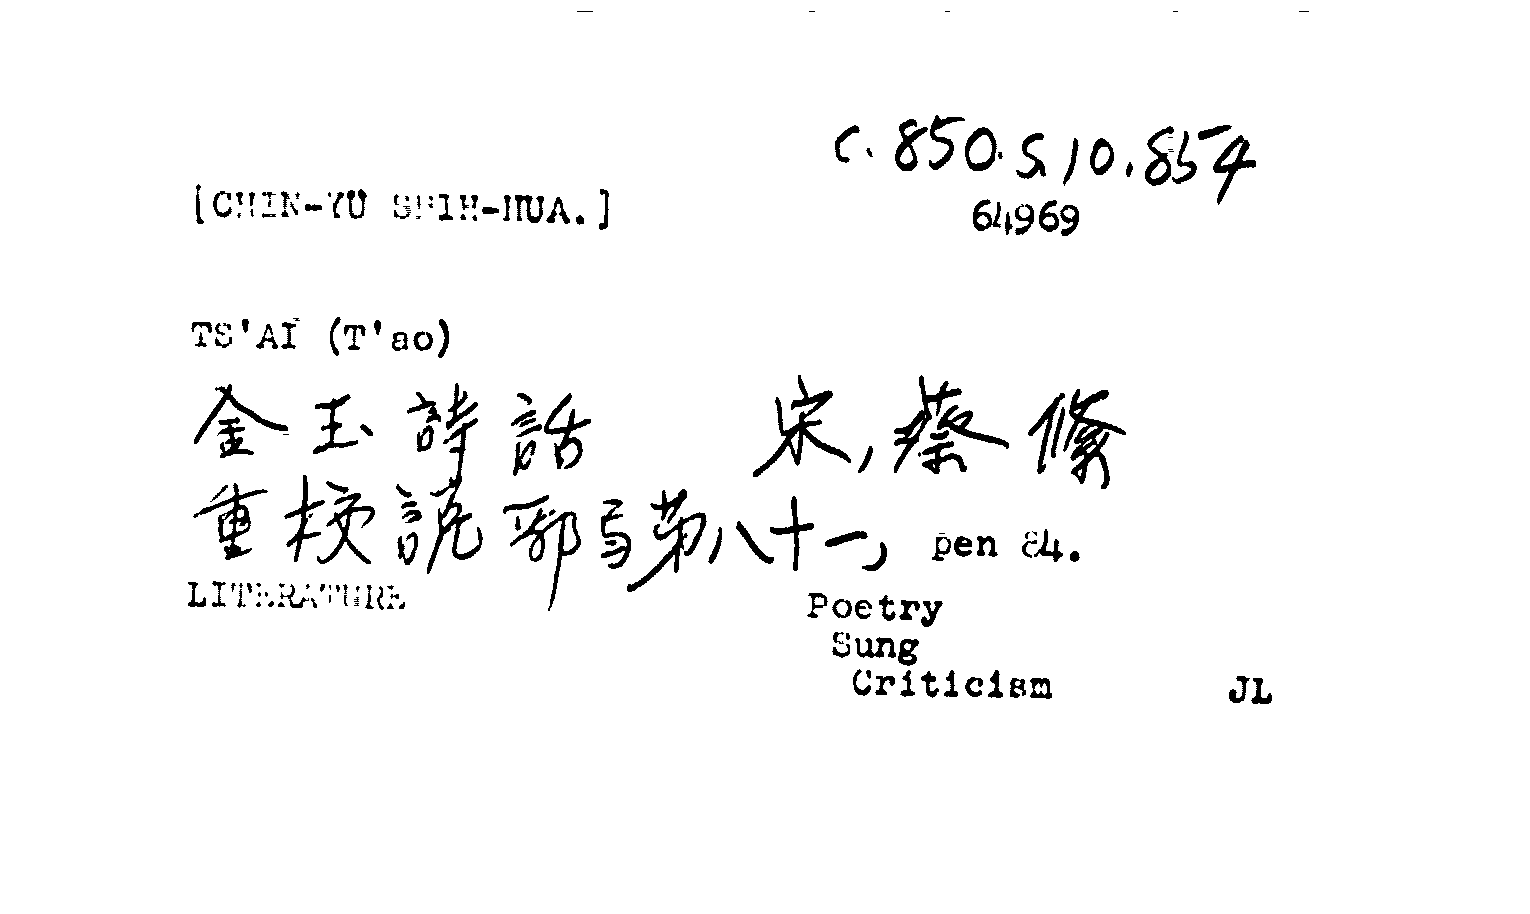 c. 850. S. 10. 854
[CHIN-YÜ SHIH-HUA.]
64969
TS'AI (T'ao)
金玉詩話 宋, 蔡絛
重校説郛 第八十一, pen 84.
LITERATURE Poetry
Sung
Criticism JL